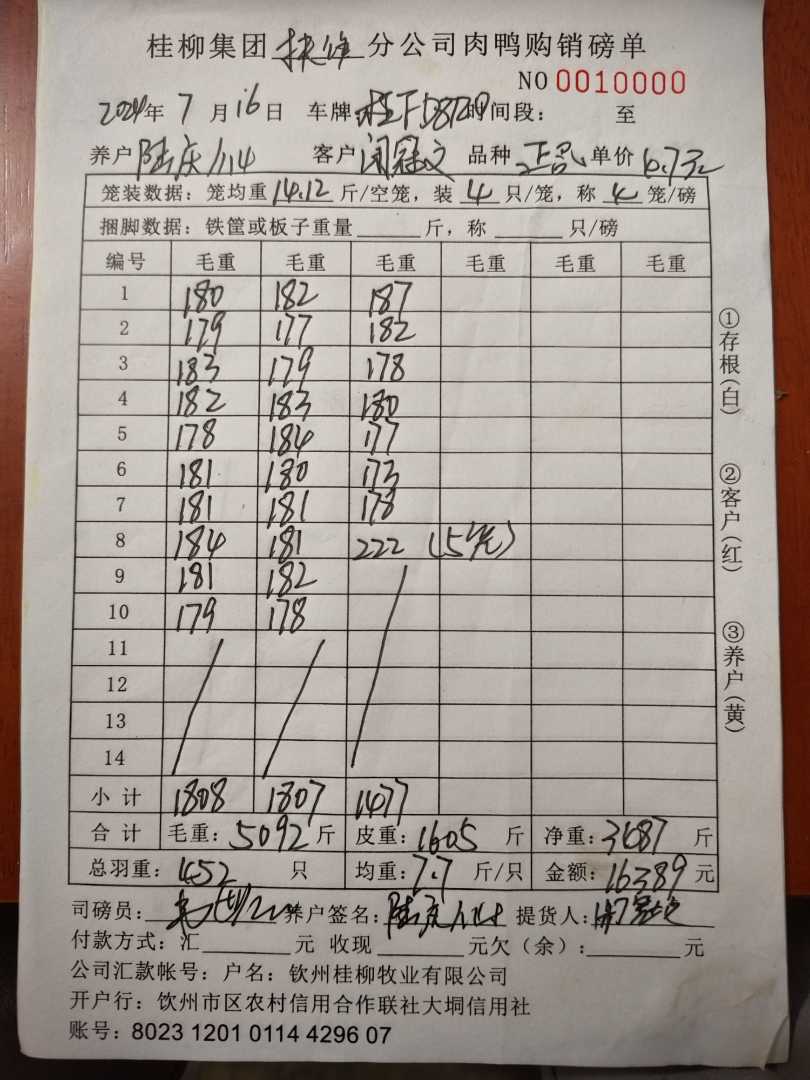 桂柳集团 分公司肉鸭购销磅单
NO 0010000
2024年 7 月 16 日 车牌 时间段： 至
养户 陆庆 客户 闭冠文 品种 正品 单价
笼装数据：笼均重 14.12 斤/空笼，装 4 只/笼，称 4 笼/磅
捆脚数据：铁筐或板子重量 斤，称 只/磅
编号 毛重 毛重 毛重 毛重 毛重 毛重
1 180 182 187
2 179 177 182
3 183 179 178
4 182 183 180
5 178 184 177
6 181 180 173
7 181 181 178
8 184 181 222 (5笼)
9 181 182
10 179 178
11
12
13
14
小计 1808 1807 1477
合计 毛重：5092 斤 皮重：1605 斤 净重：3487 斤
总羽重：452 只 均重：7.7 斤/只 金额：16389 元
司磅员： 养户签名：陆庆 提货人：闭冠文
付款方式：汇 元 收现 元欠（余）： 元
公司汇款帐号：户名：钦州桂柳牧业有限公司
开户行：钦州市区农村信用合作联社大垌信用社
账号：8023 1201 0114 4296 07
①存根（白）
②客户（红）
③养户（黄）